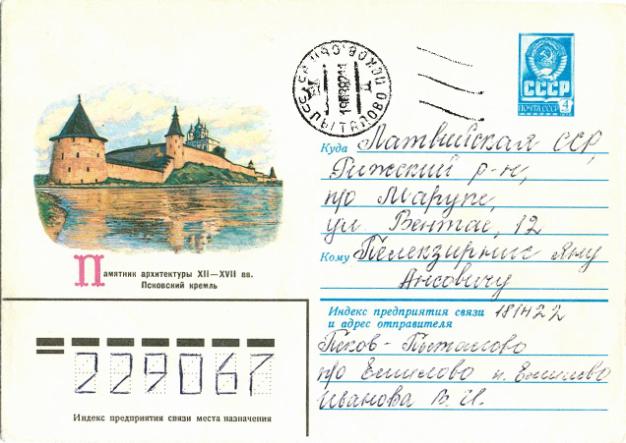 СССР
ПОЧТА СССР
4
Куда Латвийская ССР,
Рижский р-н,
про Марупе,
ул Вентас, 12
Кому Яну
Ансовичу
Памятник архитектуры XII—XVII вв.
Псковский кремль
Индекс предприятия связи
и адрес отправителя 181422
Псков-Пыталово
про Емилово н. Емилево
Иванова В. И.
229067
Индекс предприятия связи места назначения